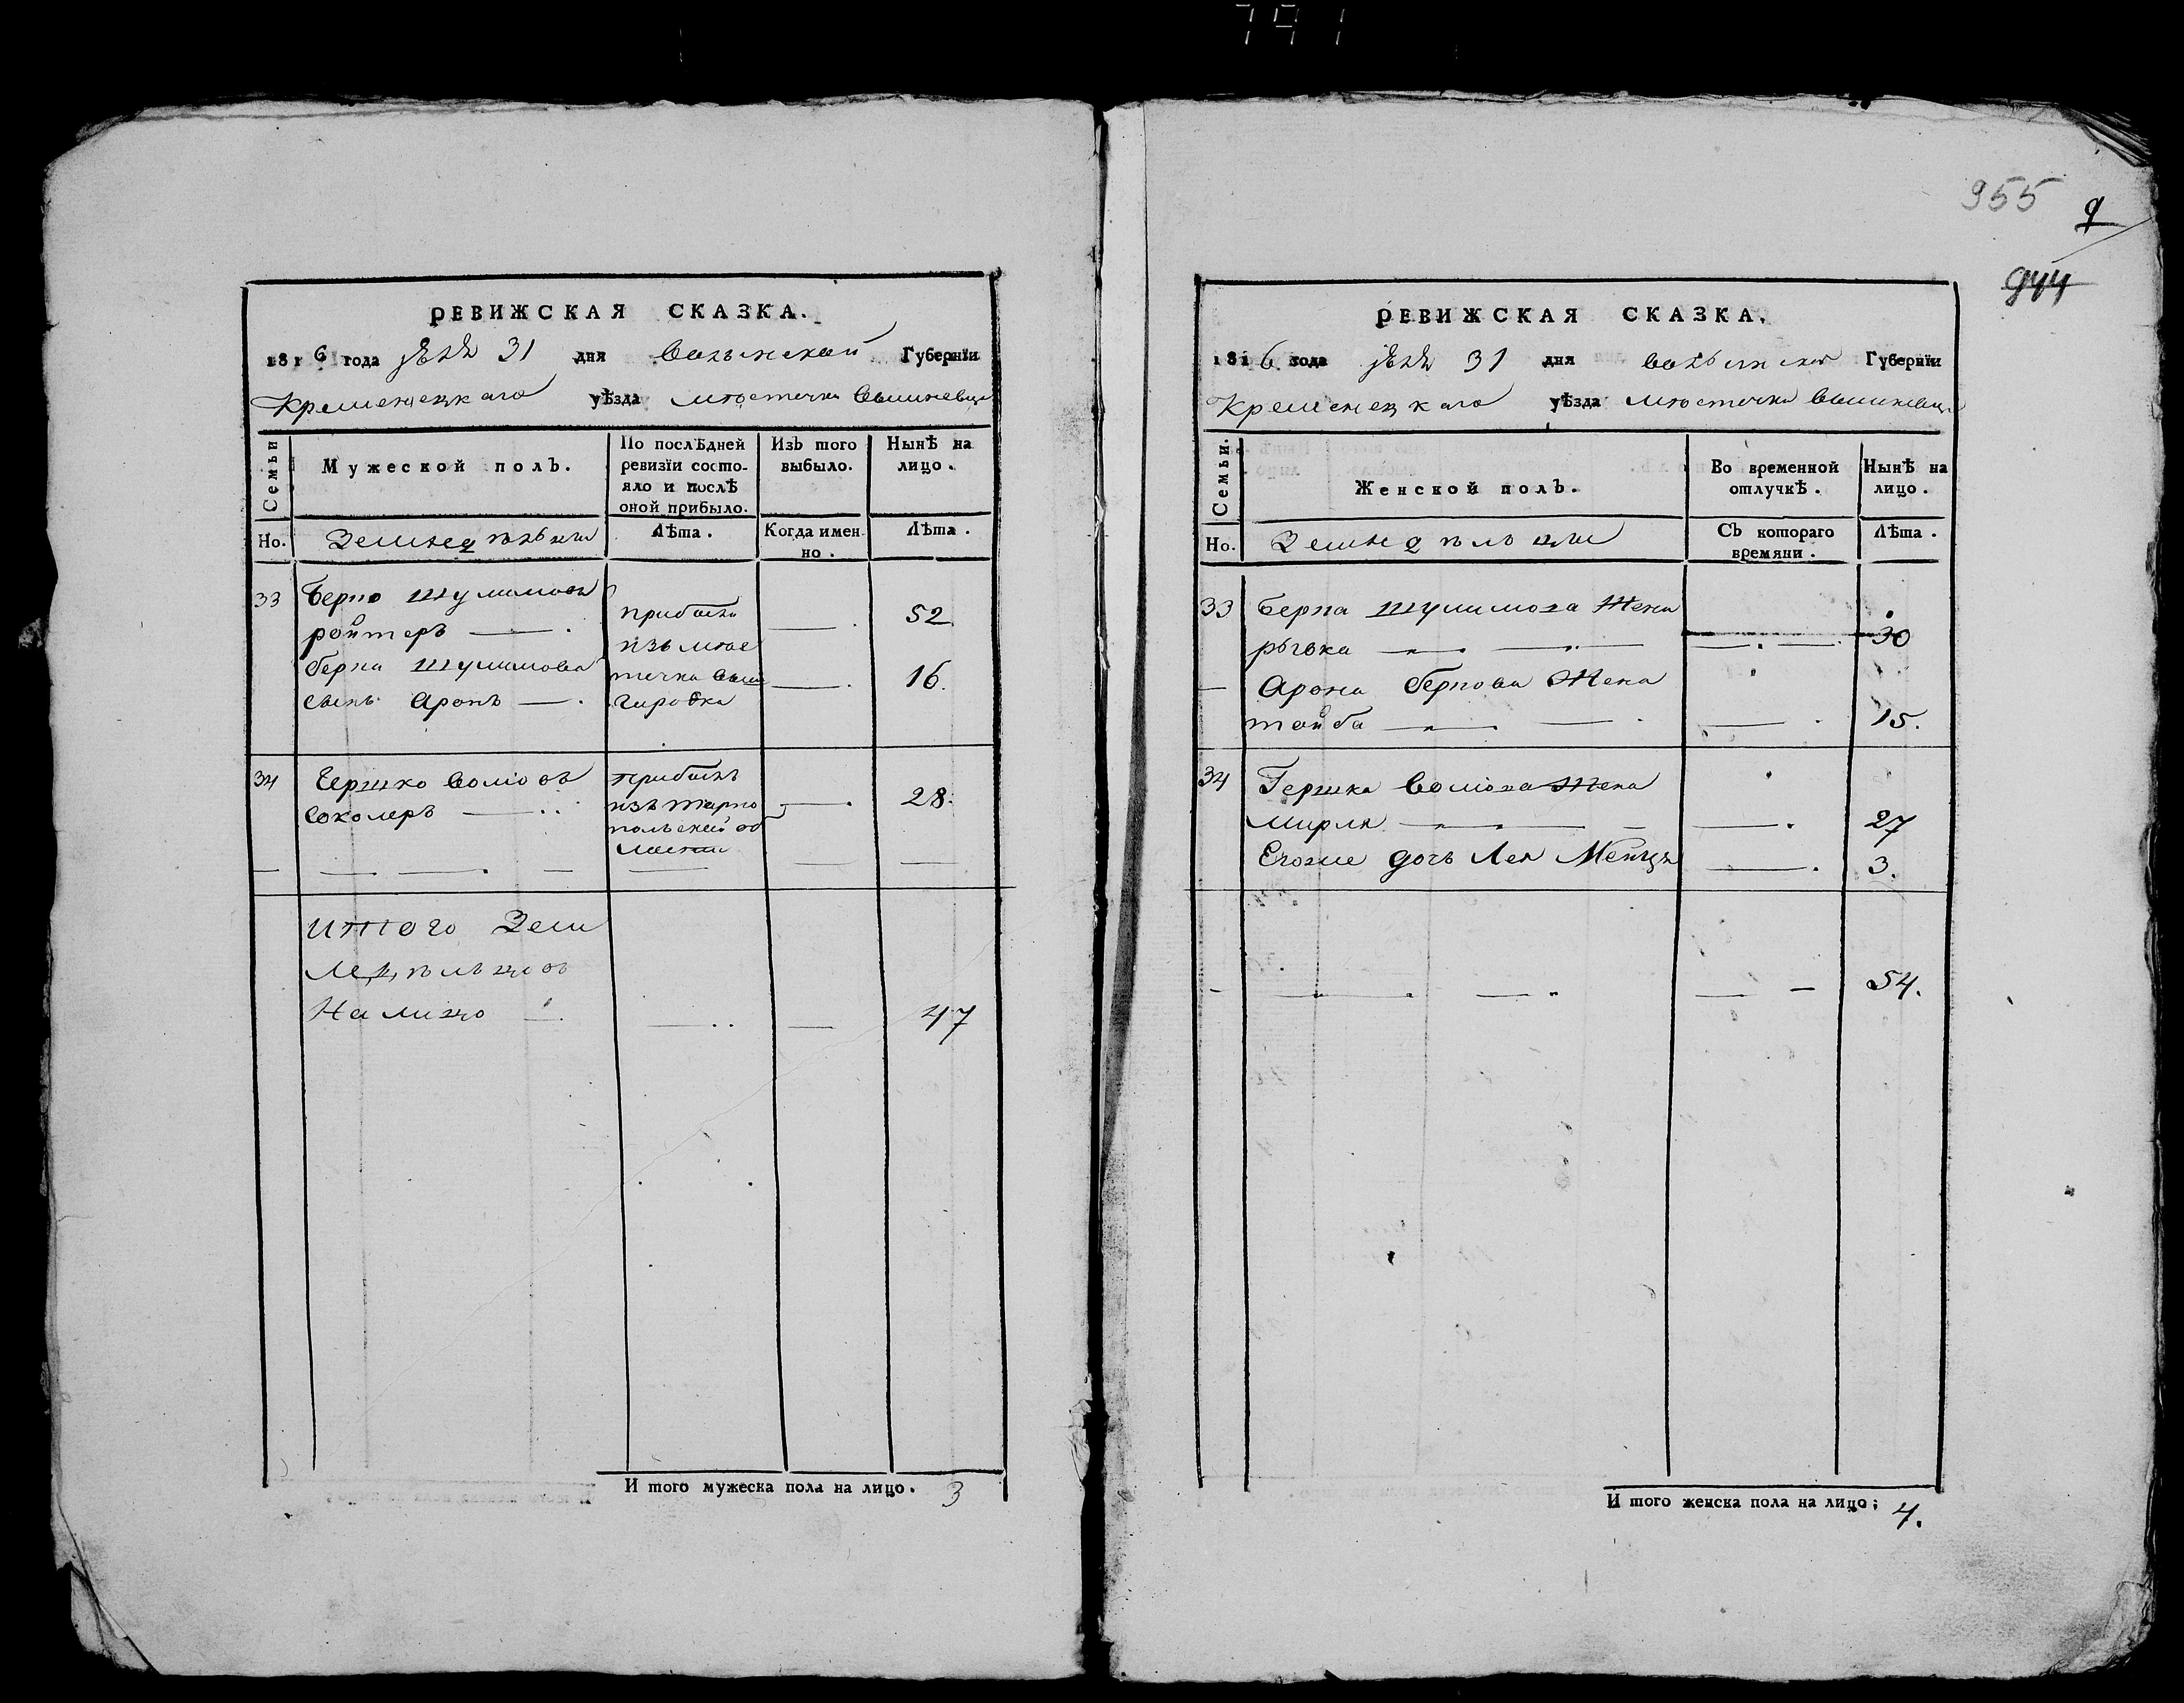 791
955
9
944
РЕВИЖСКАЯ СКАЗКА.
1816 года 31 дня Волынской Губернїи
Кременецкаго уѣзда мѣстечка Вишневца
Семьи
Мужеской полъ.
По послѣдней ревизїи состо-
яло и послѣ
оной прибыло.
Изъ того выбыло.
Нынѣ на лицо.
Но.
Земледѣльцы
Лѣта.
Когда имен-
но.
Лѣта.
33 Берко Шулимовъ
ройтеръ — прибылъ — 52
изъ мѣс
Берка Шулимова
сынъ Аронъ — течка Выш
городка — 16.
34 Гершко Волѣовъ
Соколеръ — прибылъ
изъ Тарно
польской об
ласти — 28.
Итого Зем
ледѣльцовъ
На лицо — 47
И того мужеска пола на лицо. 3
РЕВИЖСКАЯ СКАЗКА.
1816 года 31 дня Волынской Губернїи
Кременецкаго уѣзда мѣстечка Вишневца
Семьи.
Женской полъ.
Во временной
отлучкѣ.
Нынѣ на
лицо.
Но.
Земледѣльцы
Съ котораго
времяни.
Лѣта.
33 Берка Шулимова Жена
— 30
Арона Беркова Жена
тойба — 15.
34 Гершка Волѣова Жена
Мирля — 27
Егоже дочь Лея — 3.
— 54.
И того женска пола на лицо; 4.